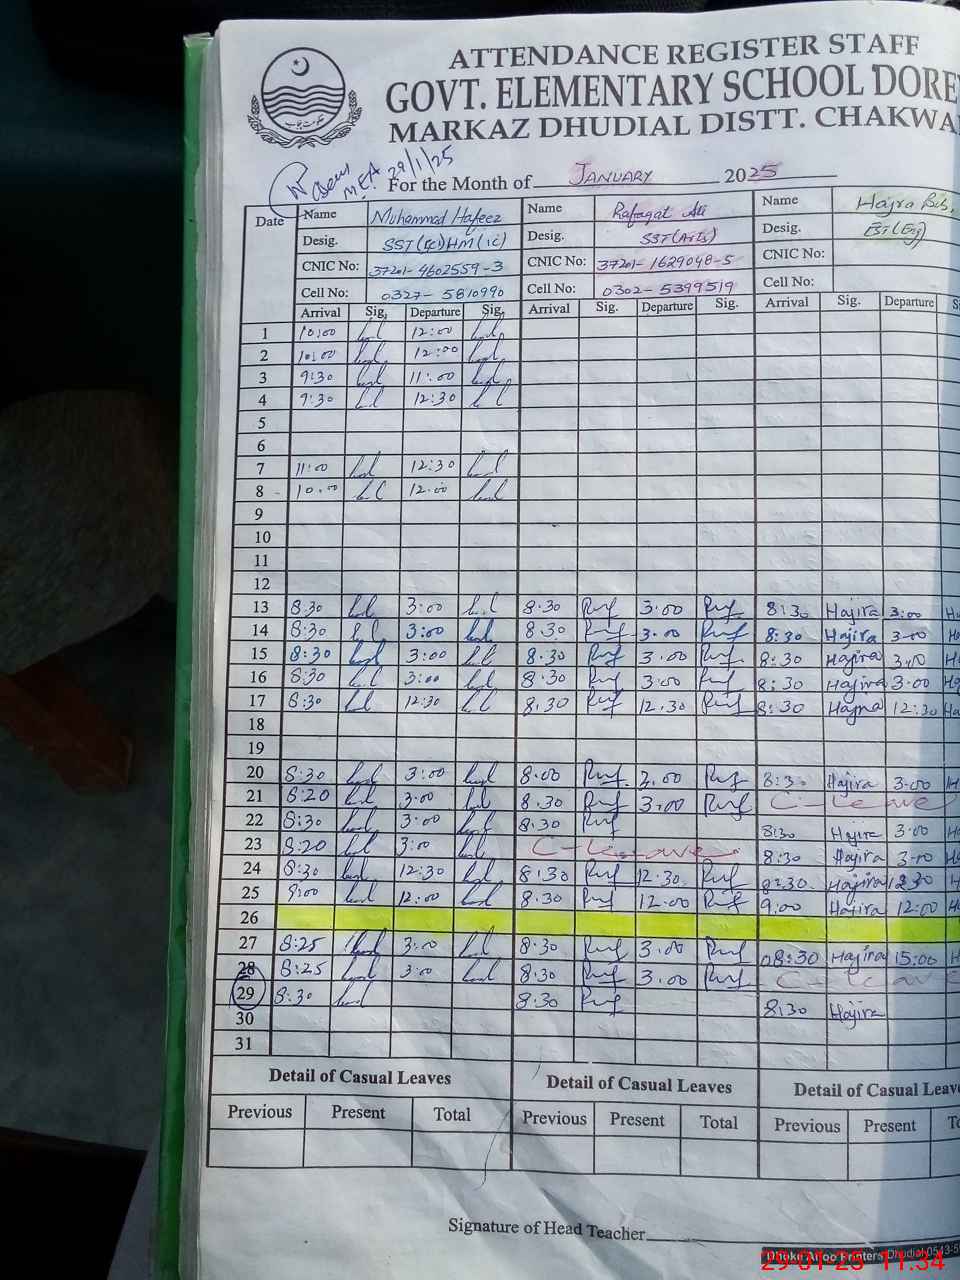 ATTENDANCE REGISTER STAFF
GOVT. ELEMENTARY SCHOOL DORE
MARKAZ DHUDIAL DISTT. CHAKWA
حکومت پنجاب
M.E.A 29/1/25
For the Month of JANUARY 2025
Date Name Muhammad Hafeez Name Rafaqat Ali Name Hajra Bibi
Desig. SST(Sc)HM(IC) Desig. SST(Arts) Desig. EST(Eng)
CNIC No: 37201-4602559-3 CNIC No: 37201-1629048-5 CNIC No:
Cell No: 0327-5810990 Cell No: 0302-5399519 Cell No:
Arrival Sig. Departure Sig. Arrival Sig. Departure Sig. Arrival Sig. Departure S
1 10:00 12:00
2 10:00 12:00
3 9:30 11:00
4 9:30 12:30
5
6
7 11:00 12:30
8 10.00 12.00
9
10
11
12
13 8.30 3:00 8.30 3.00 8:30 Hajira 3:00
14 8:30 3:00 8.30 3.00 8:30 Hajira 3.00
15 8:30 3:00 8.30 3.00 8:30 Hajira 3.00
16 8:30 3:00 8.30 3.00 8:30 Hajira 3.00
17 8:30 12:30 8.30 12.30 8:30 Hajira 12:30
18
19
20 8:30 3:00 8.00 3.00 8:30 Hajira 3.00
21 8:20 3.00 8.30 3.00 C-Leave
22 8:30 3:00 8.30 8:30 Hajira 3.00
23 8:20 3:00 C-Leave 8:30 Hajira 3.00
24 8:30 12:30 8.30 12.30 8:30 Hajira 12:30
25 9:00 12:00 8.30 12.00 9:00 Hajira 12:00
26
27 8:25 3:00 8.30 3.00 08:30 Hajira 15:00
28 8:25 3:00 8.30 3.00 C-Leave
29 8:30 8.30 8:30 Hajira
30
31
Detail of Casual Leaves Detail of Casual Leaves Detail of Casual Leav
Previous Present Total Previous Present Total Previous Present To
Signature of Head Teacher
Printers Dhudial 0543-5
29-01-25 11:34